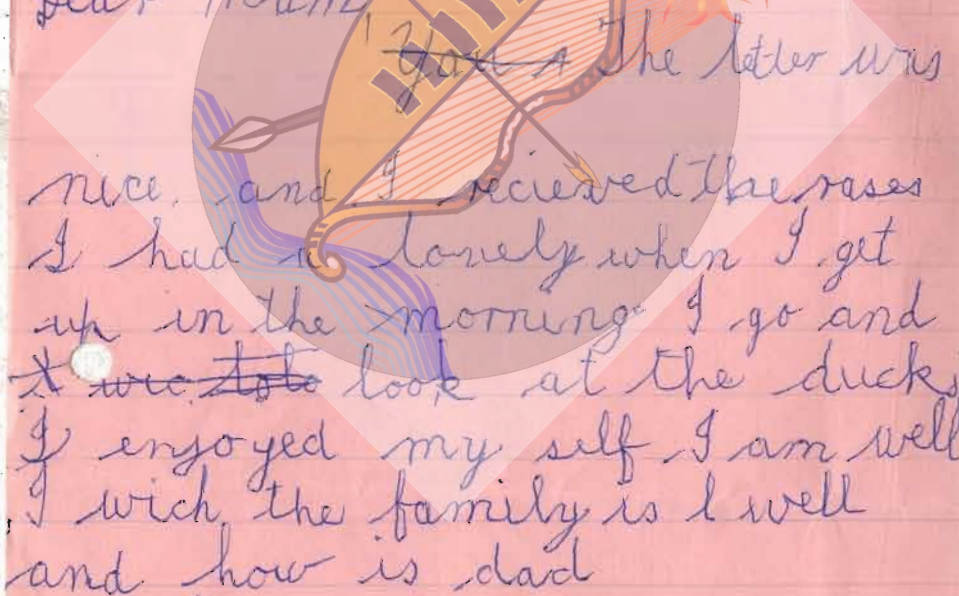 Dear Mum
The letter was
nice, and I recieved the rases
I had a lovely when I get
up in the morning I go and
look at the ducks
I enjoyed my self I am well
I wich the family is l well
and how is dad